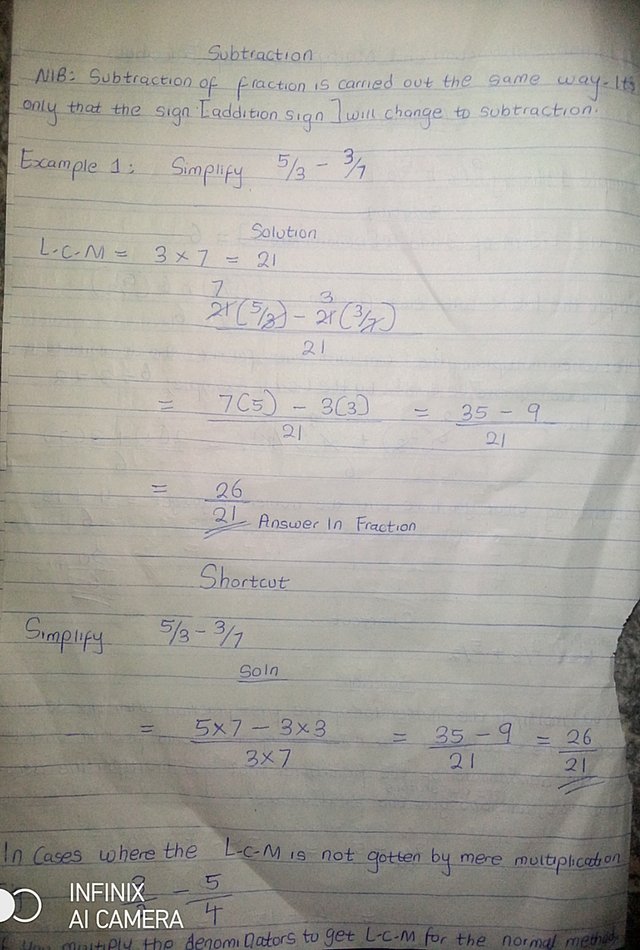 Subtraction
N/B: Subtraction of fraction is carried out the same way. Its
only that the sign [addition sign] will change to subtraction.
Example 1: Simplify 5/3 - 3/7
Solution
L.C.M = 3 × 7 = 21
7 3
21(5/3) - 21(3/7)
21
= 7(5) - 3(3) = 35 - 9
21 21
= 26
21 Answer In Fraction
Shortcut
Simplify 5/3 - 3/7
Soln
= 5×7 - 3×3 = 35 - 9 = 26
3×7 21 21
In Cases where the L-C-M is not gotten by mere multiplication
- 5
4
INFINIX
AI CAMERA
you multiply the denominators to get L-C-M for the normal method